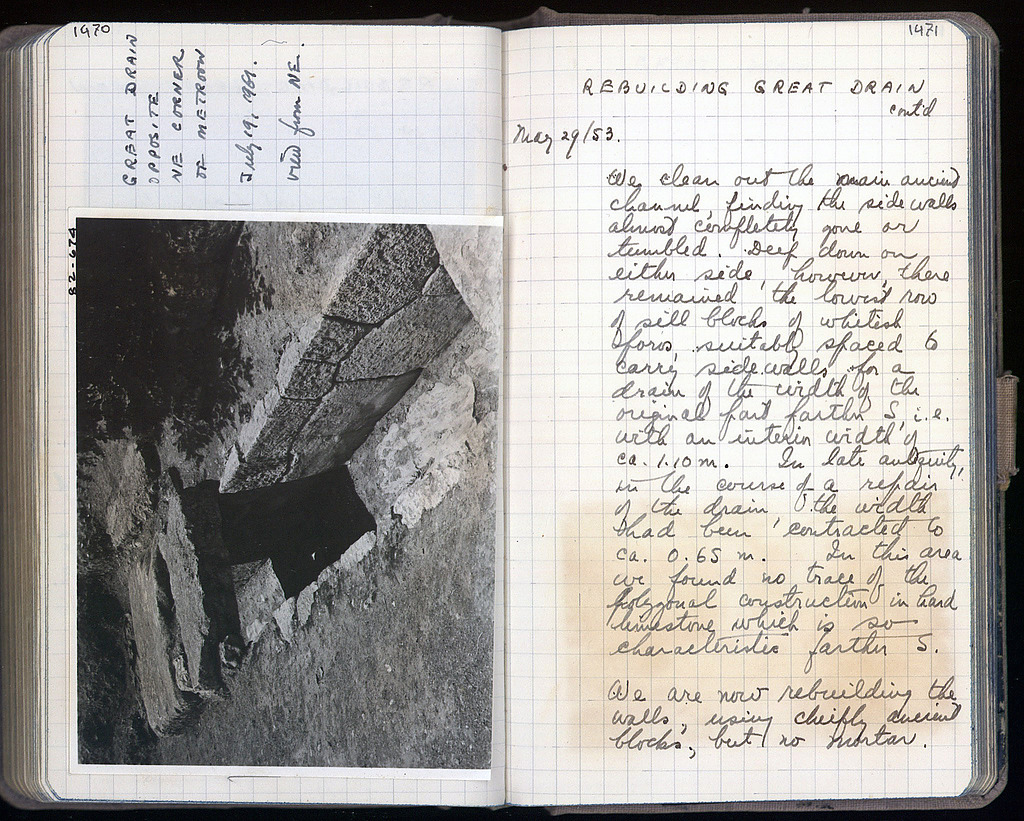 1970
GREAT DRAIN
OPPOSITE
NE CORNER
OF METROON
July 19, 1961.
view from NE.
82-674
1971
REBUILDING GREAT DRAIN
cont'd
May 29/53.
We clean out the main ancient
channel, finding the side walls
almost completely gone or
tumbled. Deep down on
either side, however, there
remained the lowest row
of sill blocks of whitish
poros, suitably spaced to
carry side walls for a
drain of the width of the
original part farther S, i.e.
with an interior width of
ca. 1.10 m. In late antiquity,
in the course of a repair
of the drain the width
had been contracted to
ca. 0.65 m. In this area
we found no trace of the
polygonal construction in hard
limestone which is so
characteristic farther S.
We are now rebuilding the
walls, using cheifly ancient
blocks, but no mortar.